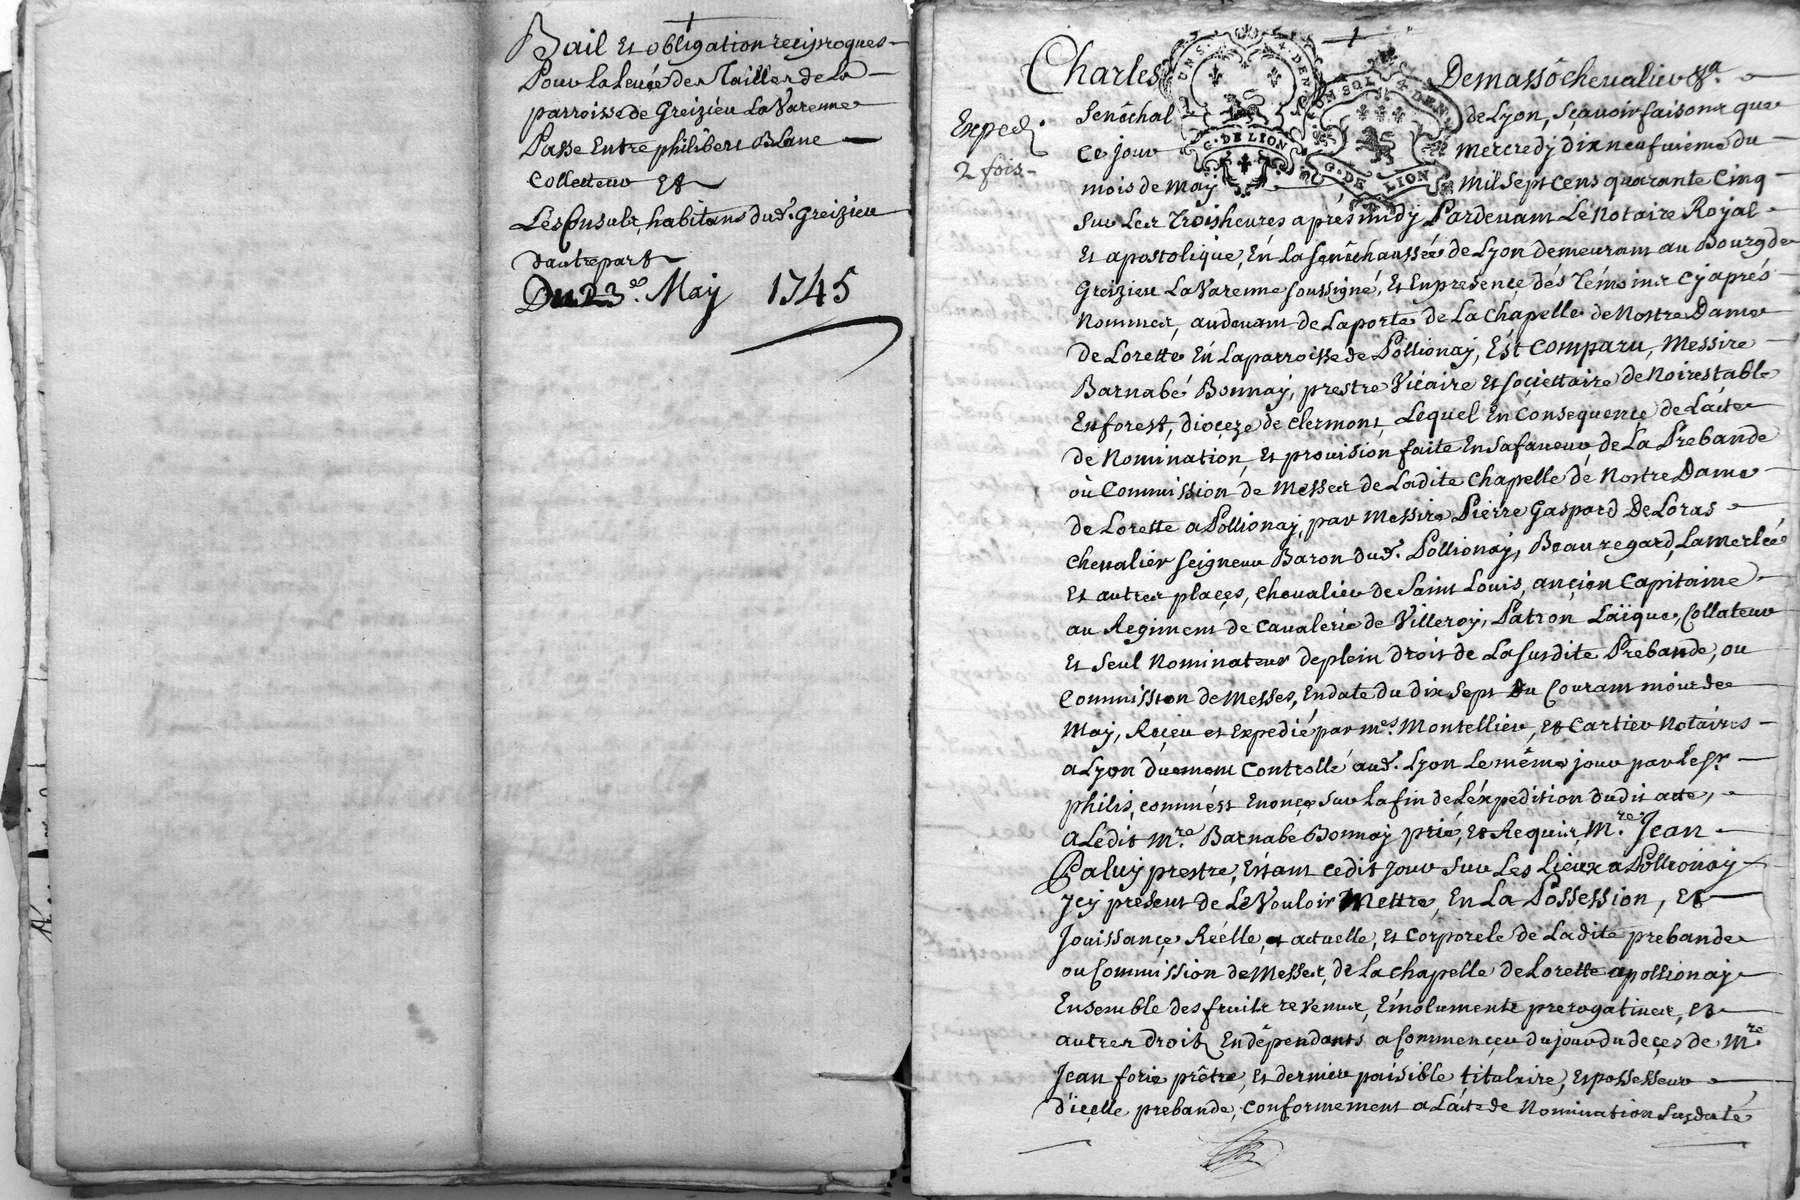 Bail et obligation reciproques
Pour la levée des Tailles de la
parroisse de Greizieu La Varenne
Passé Entre philibert Blanc
Collecteur Et
Les Consuls, habitans dud. Greizieu
d'autre part
Du 23e. May 1745
Charles Demasso chevalier &a.
Exped.
2 fois
Senéchal de Lyon, Sçavoir faisons que
Ce jour mercredy dix neufuieme du
mois de May mil sept cens quarante Cinq
Sur Les Trois heures aprés midy Pardevant Le Notaire Royal
Et apostolique, En La senéchaussée de Lyon demeurant au Bourg de
Greizieu La Varenne soussigné, Et En presence dés Témoins Cy aprés
Nommez, au devant de La porte de La Chapelle de Nostre Dame
de Lorette En La parroisse de Pollionay, Est Comparu, Messire
Barnabé Bonnay, prestre Vicaire Et Societtaire de Noirestable
En forest, dioceze de Clermont, Lequel En Consequence de L'acte
de Nomination, Et provision faite En sa faveur, de La Prebande
où Commission de Messes de Ladite Chapelle de Nostre Dame
de Lorette a Pollionay, par Messire Pierre Gaspard De Loras
Chevalier Seigneur Baron dud. Pollionay, Beauregard, Lamerlée
Et autres places, Chevalier de Saint Louis, ancien Capitaine
au Regiment de Cavalerie de Villeroy, Patron Laïque, Collateur
Et Seul Nominateur de plein droit de La Susdite Prebande, ou
Commission de Messes, En date du dix sept du Courant mois de
May, Reçeu et Expedié par mes. Montellier, et Cartier Notaires
a Lyon duement Controllé aud. Lyon Le même jour par Le Sr.
philis, comm'est Enoncé Sur La fin de L'expedition dudit acte,
a Ledit Mre. Barnabé Bonnay prié, et Requis, Mre. Jean
Paluy prestre, Estant cedit Jour Sur Les Lieux a Pollionay
Jcy present de Le Vouloir Mettre, En La Possession, Et
Jouissance Réelle, actuelle, Et Corporele de Ladite prebande
ou Commission de Messes, de La Chapelle de Lorette a pollionay
Ensemble des fruits revenus, Emoluments prerogatives, et
autres droits En dépendants a Commencer du jour du deces de Mre
Jean forie prêtre, Et dernier paisible titulaire, Et possesseur
d'icelle prebande, Conformement a L'acte de Nomination Susdaté
UNS. 4. DEN
G. DE LION
UN SOL 4. DEN
G. DE LION